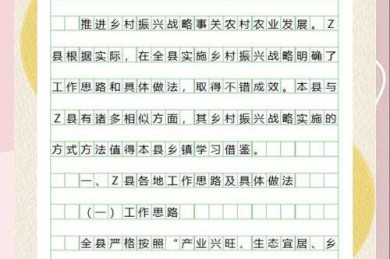 推进乡村振兴战略事关农村农业发展。Z
县根据实际，在全县实施乡村振兴战略明确了
工作思路和具体做法，取得不错成效。本县与
Z县有诸多相似方面，其乡村振兴战略实施的
方式方法值得本县乡镇学习借鉴。
一、Z县各地工作思路及具体做法
（一）工作思路
全县严格按照“产业兴旺、生态宜居、乡